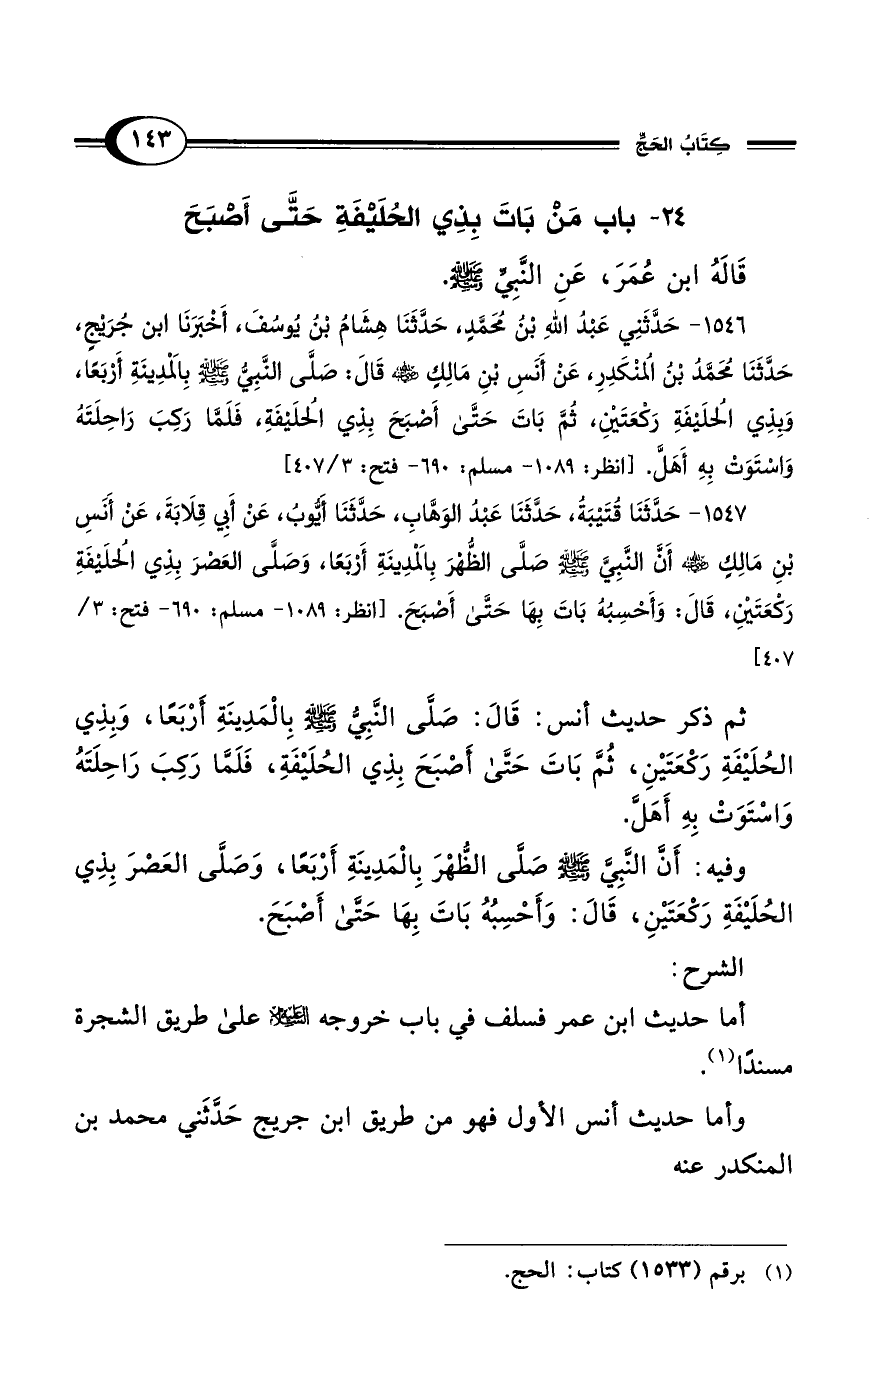 كِتَابُ الحَجِّ ١٤٣
٢٤- باب مَنْ بَاتَ بِذِي الحُلَيْفَةِ حَتَّى أَصْبَحَ
قَالَهُ ابن عُمَرَ، عَنِ النَّبِيِّ ﷺ.
١٥٤٦- حَدَّثَنِي عَبْدُ اللهِ بْنُ مُحَمَّدٍ، حَدَّثَنَا هِشَامُ بْنُ يُوسُفَ، أَخْبَرَنَا ابن جُرَيْجٍ،
حَدَّثَنَا مُحَمَّدُ بْنُ المُنْكَدِرِ، عَنْ أَنَسِ بْنِ مَالِكٍ رضي الله عنه قَالَ: صَلَّى النَّبِيُّ ﷺ بِالمَدِينَةِ أَرْبَعًا،
وَبِذِي الحُلَيْفَةِ رَكْعَتَيْنِ، ثُمَّ بَاتَ حَتَّىٰ أَصْبَحَ بِذِي الحُلَيْفَةِ، فَلَمَّا رَكِبَ رَاحِلَتَهُ
وَاسْتَوَتْ بِهِ أَهَلَّ. [انظر: ١٠٨٩- مسلم: ٦٩٠- فتح: ٣/ ٤٠٧]
١٥٤٧- حَدَّثَنَا قُتَيْبَةُ، حَدَّثَنَا عَبْدُ الوَهَّابِ، حَدَّثَنَا أَيُّوبُ، عَنْ أَبِي قِلَابَةَ، عَنْ أَنَسِ
بْنِ مَالِكٍ رضي الله عنه أَنَّ النَّبِيَّ ﷺ صَلَّى الظُّهْرَ بِالمَدِينَةِ أَرْبَعًا، وَصَلَّى العَصْرَ بِذِي الحُلَيْفَةِ
رَكْعَتَيْنِ، قَالَ: وَأَحْسِبُهُ بَاتَ بِهَا حَتَّىٰ أَصْبَحَ. [انظر: ١٠٨٩- مسلم: ٦٩٠- فتح: ٣/
٤٠٧]
ثم ذكر حديث أنس: قَالَ: صَلَّى النَّبِيُّ ﷺ بِالْمَدِينَةِ أَرْبَعًا، وَبِذِي
الحُلَيْفَةِ رَكْعَتَيْنِ، ثُمَّ بَاتَ حَتَّىٰ أَصْبَحَ بِذِي الحُلَيْفَةِ، فَلَمَّا رَكِبَ رَاحِلَتَهُ
وَاسْتَوَتْ بِهِ أَهَلَّ.
وفيه: أَنَّ النَّبِيَّ ﷺ صَلَّى الظُّهْرَ بِالْمَدِينَةِ أَرْبَعًا، وَصَلَّى العَصْرَ بِذِي
الحُلَيْفَةِ رَكْعَتَيْنِ، قَالَ: وَأَحْسِبُهُ بَاتَ بِهَا حَتَّىٰ أَصْبَحَ.
الشرح:
أما حديث ابن عمر فسلف في باب خروجه عليه السلام علىٰ طريق الشجرة
مسندًا(١).
وأما حديث أنس الأول فهو من طريق ابن جريج حَدَّثَني محمد بن
المنكدر عنه
(١) برقم (١٥٣٣) كتاب: الحج.